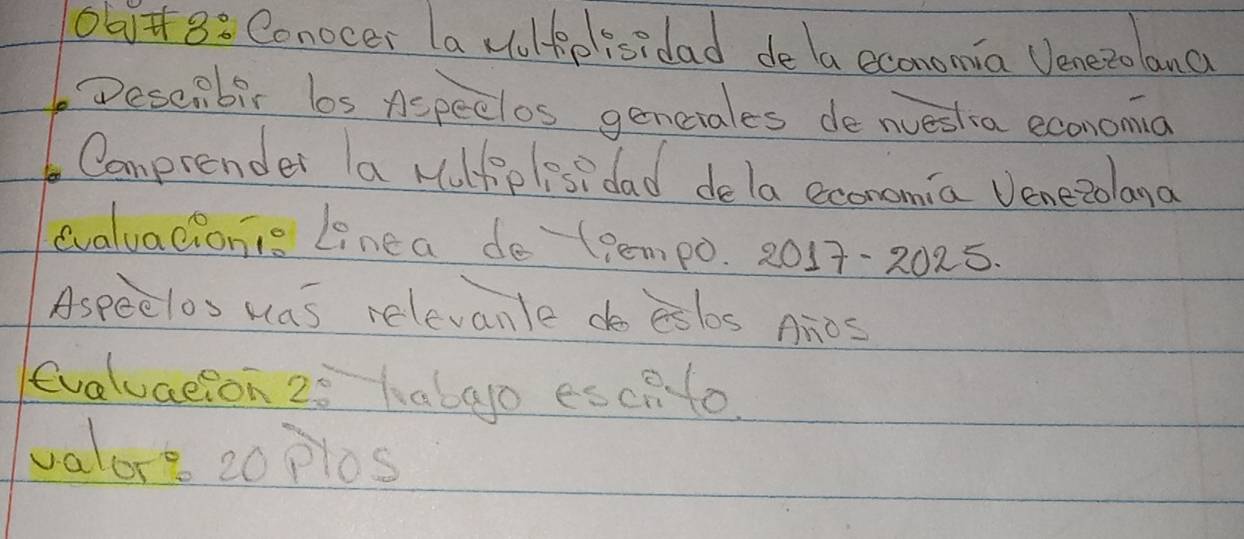 Obj#3: Conocer la Multiplisidad de la economía Venezolana
• Describir los Aspectos generales de nuestra economía
• Comprender la Multiplisidad de la economía Venezolana
Evaluación 1: Línea de tiempo. 2017-2025.
Aspectos Más relevante de estos Años
Evaluación 2: trabajo escrito.
valor: 20 Ptos